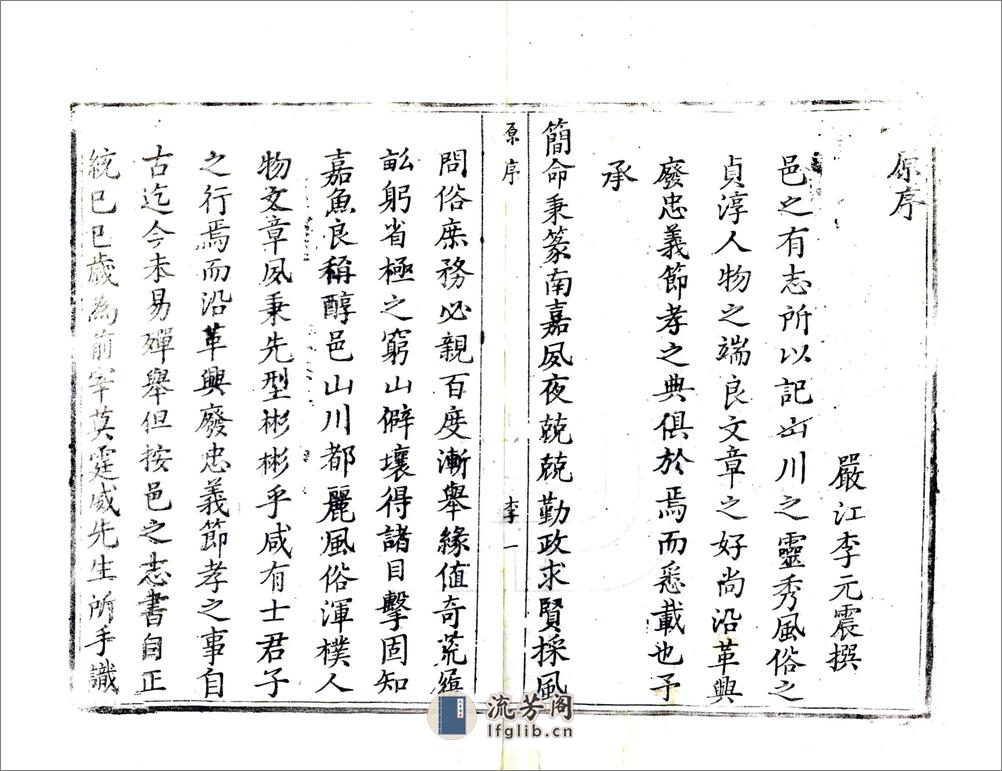 原序
嚴江李元震撰
邑之有志所以記山川之靈秀風俗之
貞淳人物之端良文章之好尚沿革興
廢忠義節孝之典俱於焉而悉載也予
承
簡命秉篆南嘉夙夜兢兢勤政求賢採風
原序
李一
問俗庶務必親百度漸舉緣值奇荒履
畝躬省極之窮山僻壤得諸目擊固知
嘉魚良稱醇邑山川都麗風俗渾樸人
物文章夙秉先型彬彬乎咸有士君子
之行焉而沿革興廢忠義節孝之事自
古迄今未易殫舉但按邑之志書自正
統己巳歲為前宰莫霆威先生所手識
流芳阁
lfglib.cn